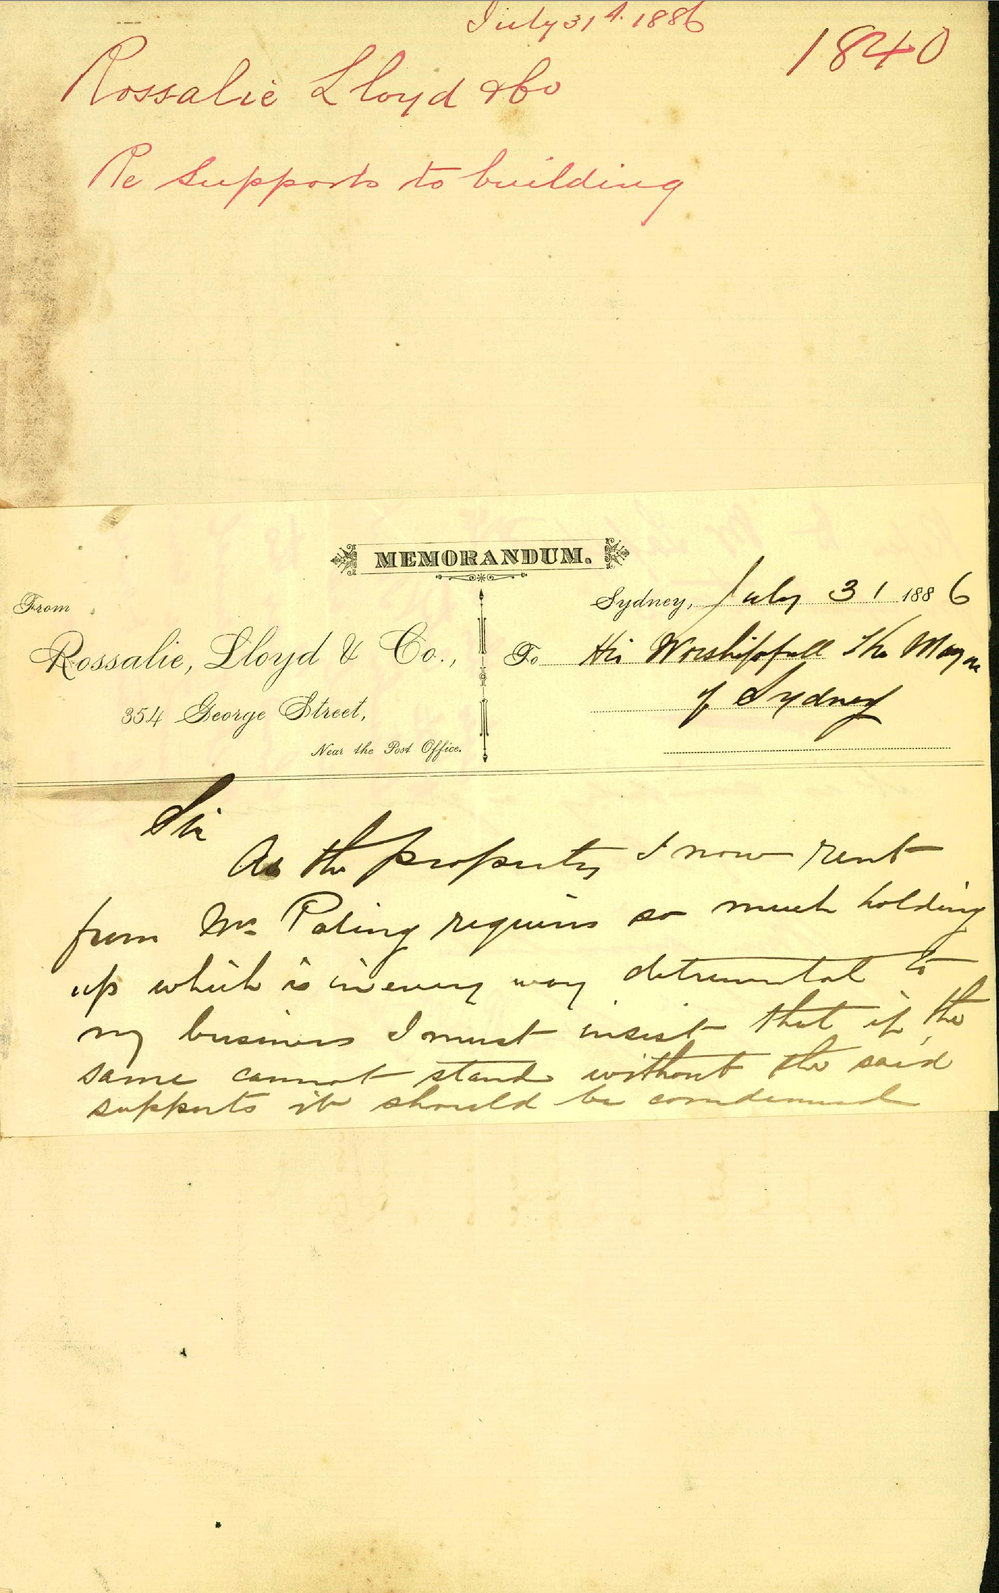 July 31st. 1886
1840
Rossalie Lloyd & Co
Re Supports to building
MEMORANDUM.
From
Sydney, July 31 1886
Rossalie, Lloyd & Co.,
To His Worshipfull The Mayor
of Sydney
354 George Street,
Near the Post Office.
Sir
As the property I now rent
from Mr Paling requires so much holding
up which is in every way detrimental to
my business I must insist that if the
same cannot stand without the said
supports it should be condemned